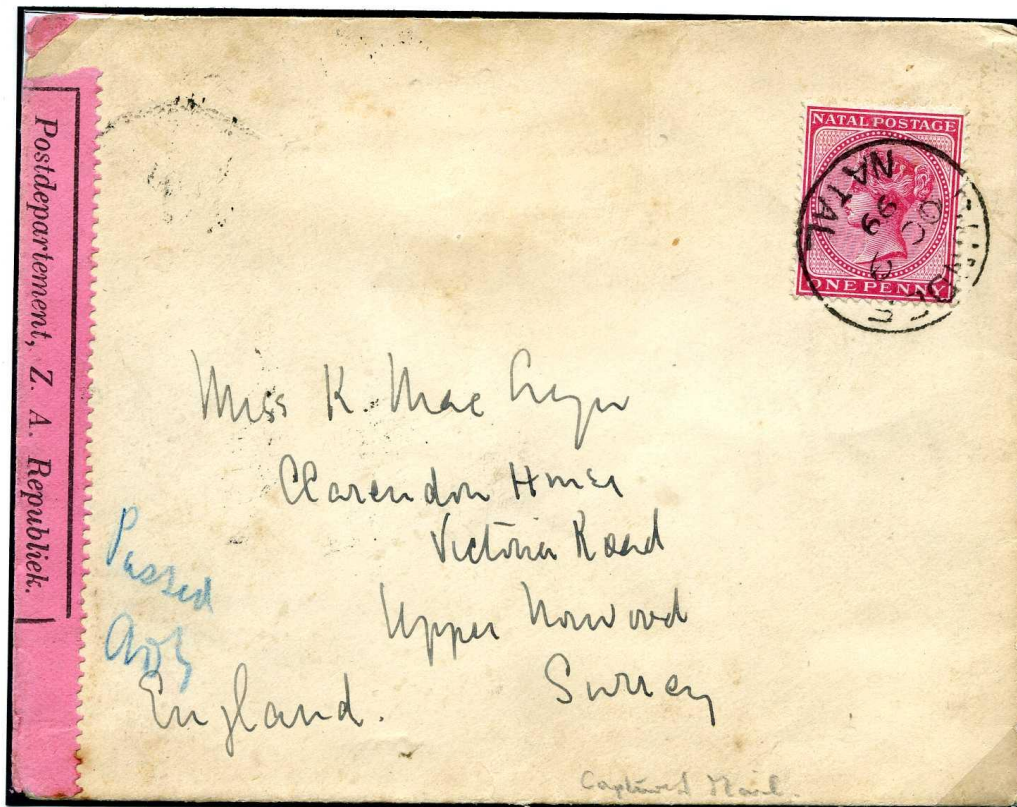 Postdepartement, Z. A. Republiek.
NATAL POSTAGE
ONE PENNY
NATAL
OC
99
Miss K. Mac
Clarendon House
Victoria Road
Upper Norwood
Surrey
England.
Passed
Captured Mail.